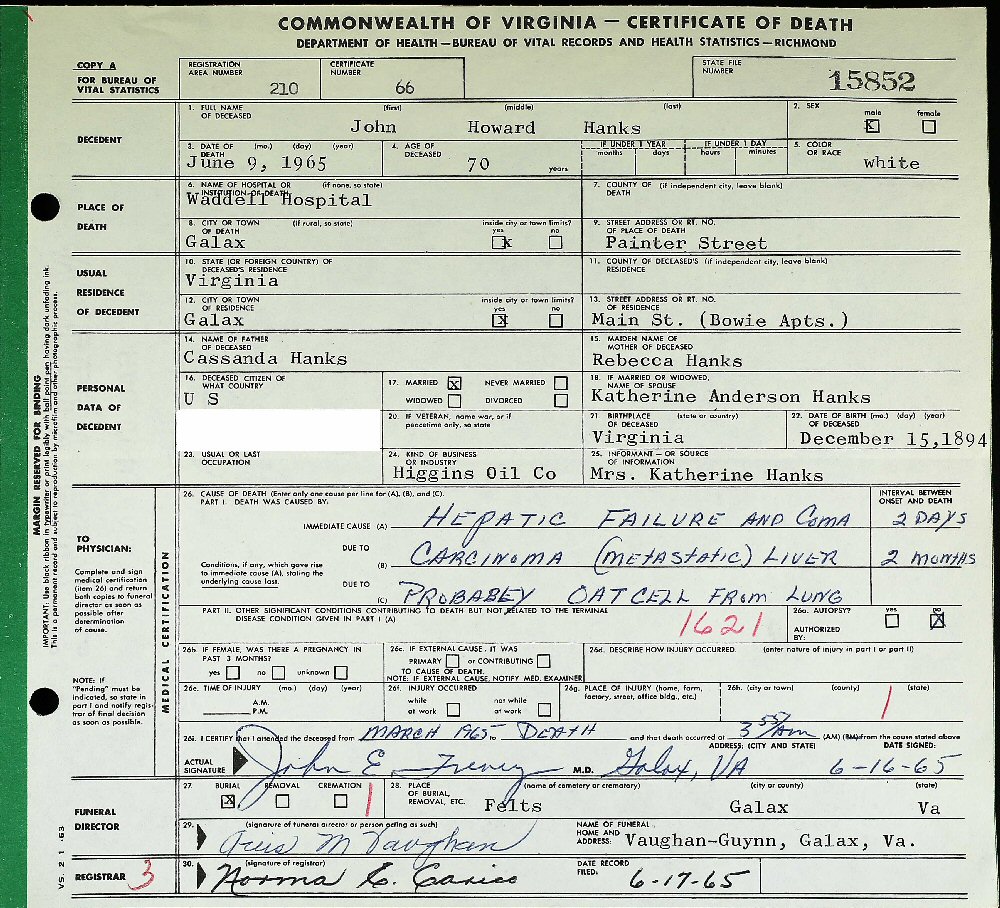 COMMONWEALTH OF VIRGINIA — CERTIFICATE OF DEATH
DEPARTMENT OF HEALTH — BUREAU OF VITAL RECORDS AND HEALTH STATISTICS — RICHMOND
COPY A
FOR BUREAU OF VITAL STATISTICS
REGISTRATION AREA NUMBER 210
CERTIFICATE NUMBER 66
STATE FILE NUMBER 15852
DECEDENT
1. FULL NAME OF DECEASED (first) (middle) (last)
John Howard Hanks
2. SEX male X female
3. DATE OF DEATH (mo.) (day) (year)
June 9, 1965
4. AGE OF DECEASED 70 years
IF UNDER 1 YEAR months days
IF UNDER 1 DAY hours minutes
5. COLOR OR RACE white
PLACE OF DEATH
6. NAME OF HOSPITAL OR INSTITUTION OF DEATH (if none, so state)
Waddell Hospital
7. COUNTY OF DEATH (if independent city, leave blank)
8. CITY OR TOWN OF DEATH (if rural, so state)
Galax
inside city or town limits? yes x no
9. STREET ADDRESS OR RT. NO. OF PLACE OF DEATH
Painter Street
USUAL RESIDENCE OF DECEDENT
10. STATE (OR FOREIGN COUNTRY) OF DECEASED'S RESIDENCE
Virginia
11. COUNTY OF DECEASED'S RESIDENCE (if independent city, leave blank)
12. CITY OR TOWN OF RESIDENCE
Galax
inside city or town limits? yes x no
13. STREET ADDRESS OR RT. NO. OF RESIDENCE
Main St. (Bowie Apts.)
PERSONAL DATA OF DECEDENT
14. NAME OF FATHER OF DECEASED
Cassanda Hanks
15. MAIDEN NAME OF MOTHER OF DECEASED
Rebecca Hanks
16. DECEASED CITIZEN OF WHAT COUNTRY
U S
17. MARRIED X NEVER MARRIED
WIDOWED DIVORCED
18. IF MARRIED OR WIDOWED, NAME OF SPOUSE
Katherine Anderson Hanks
20. IF VETERAN, name war, or if peacetime only, so state
21. BIRTHPLACE OF DECEASED (state or country)
Virginia
22. DATE OF BIRTH OF DECEASED (mo.) (day) (year)
December 15,1894
23. USUAL OR LAST OCCUPATION
24. KIND OF BUSINESS OR INDUSTRY
Higgins Oil Co
25. INFORMANT — OR SOURCE OF INFORMATION
Mrs. Katherine Hanks
MARGIN RESERVED FOR BINDING
IMPORTANT: Use black ribbon in typewriter or print legibly with ball point pen having dark unfading ink.
This is a permanent record and subject to reproduction by microfilm and other photographic process.
TO PHYSICIAN:
Complete and sign medical certification (item 26) and return both copies to funeral director as soon as possible after determination of cause.
NOTE: If "Pending" must be indicated, so state in part I and notify registrar of final decision as soon as possible.
MEDICAL CERTIFICATION
26. CAUSE OF DEATH (Enter only one cause per line for (A), (B), and (C).
PART I. DEATH WAS CAUSED BY:
INTERVAL BETWEEN ONSET AND DEATH
IMMEDIATE CAUSE (A) HEPATIC FAILURE AND COMA 2 DAYS
DUE TO
Conditions, if any, which gave rise to immediate cause (A), stating the underlying cause last.
(B) CARCINOMA (METASTATIC) LIVER 2 MONTHS
DUE TO
(C) PROBABLY OAT CELL FROM LUNG
PART II. OTHER SIGNIFICANT CONDITIONS CONTRIBUTING TO DEATH BUT NOT RELATED TO THE TERMINAL DISEASE CONDITION GIVEN IN PART I (A)
1621
26a. AUTOPSY? yes no X
AUTHORIZED BY:
26b. IF FEMALE, WAS THERE A PREGNANCY IN PAST 3 MONTHS?
yes no unknown
26c. IF EXTERNAL CAUSE, IT WAS
PRIMARY or CONTRIBUTING
TO CAUSE OF DEATH.
NOTE: IF EXTERNAL CAUSE, NOTIFY MED. EXAMINER
26d. DESCRIBE HOW INJURY OCCURRED. (enter nature of injury in part I or part II)
26e. TIME OF INJURY (mo.) (day) (year)
A.M.
P.M.
26f. INJURY OCCURRED
while at work not while at work
26g. PLACE OF INJURY (home, farm, factory, street, office bldg., etc.)
26h. (city or town) (county) (state)
26i. I CERTIFY that I attended the deceased from MARCH 1965 to DEATH and that death occurred at 3 55/AM (AM) (PM) from the cause stated above
ADDRESS: (CITY AND STATE) DATE SIGNED:
ACTUAL SIGNATURE John E M.D. Galax, VA 6-16-65
FUNERAL DIRECTOR
27. BURIAL X REMOVAL CREMATION
28. PLACE OF BURIAL, REMOVAL, ETC. (name of cemetery or crematory) (city or county) (state)
Felts Galax Va
29. (signature of funeral director or person acting as such)
M Vaughan
NAME OF FUNERAL HOME AND ADDRESS: Vaughan-Guynn, Galax, Va.
REGISTRAR 3
30. (signature of registrar)
Norma
DATE RECORD FILED: 6-17-65
VS. 2 1-63